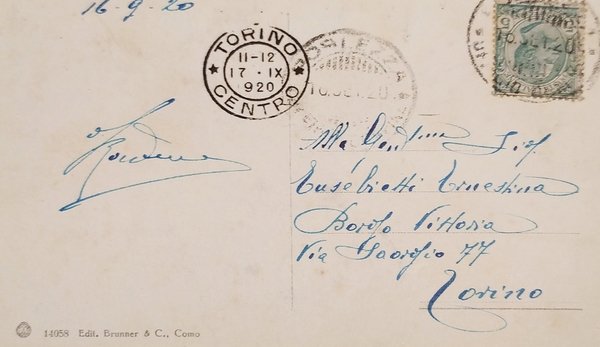 16-9-20
TORINO
11-12
17 · IX
920
CENTRO
16.SET.20.
Alla Gent.ma Sig.
Eusebietti Ernestina
Borgo Vittoria
Via 77
Torino
14058 Edit. Brunner & C., Como